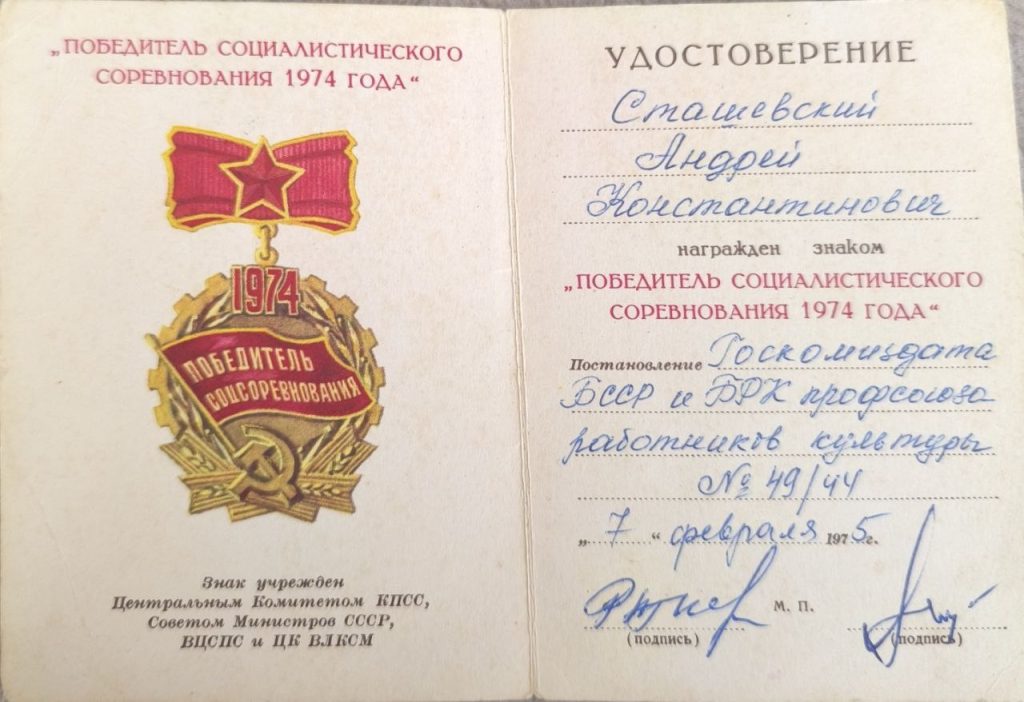 „ПОБЕДИТЕЛЬ СОЦИАЛИСТИЧЕСКОГО
СОРЕВНОВАНИЯ 1974 ГОДА“
1974
ПОБЕДИТЕЛЬ
СОЦСОРЕВНОВАНИЯ
Знак учрежден
Центральным Комитетом КПСС,
Советом Министров СССР,
ВЦСПС и ЦК ВЛКСМ
УДОСТОВЕРЕНИЕ
Сташевский
Андрей
Константинович
награжден знаком
„ПОБЕДИТЕЛЬ СОЦИАЛИСТИЧЕСКОГО
СОРЕВНОВАНИЯ 1974 ГОДА“
Постановление Госкомиздата
БССР и БРК профсоюза
работников культуры
№ 49/44
„7“ февраля 1975г.
М. П.
(подпись) (подпись)